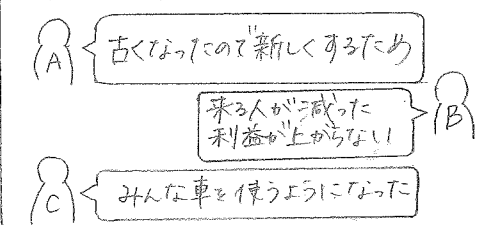 A
古くなったので新しくするため
来る人が減った
利益が上がらない
B
C
みんな車を使うようになった